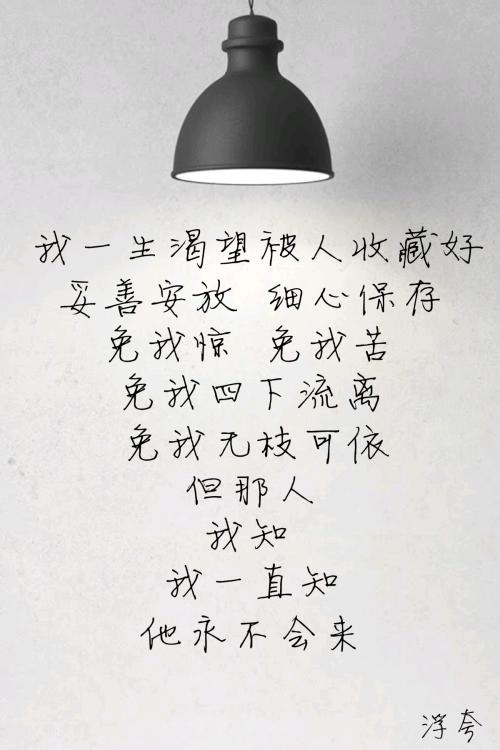 我一生渴望被人收藏好
妥善安放 细心保存
免我惊 免我苦
免我四下流离
免我无枝可依
但那人
我知
我一直知
他永不会来
浮夸